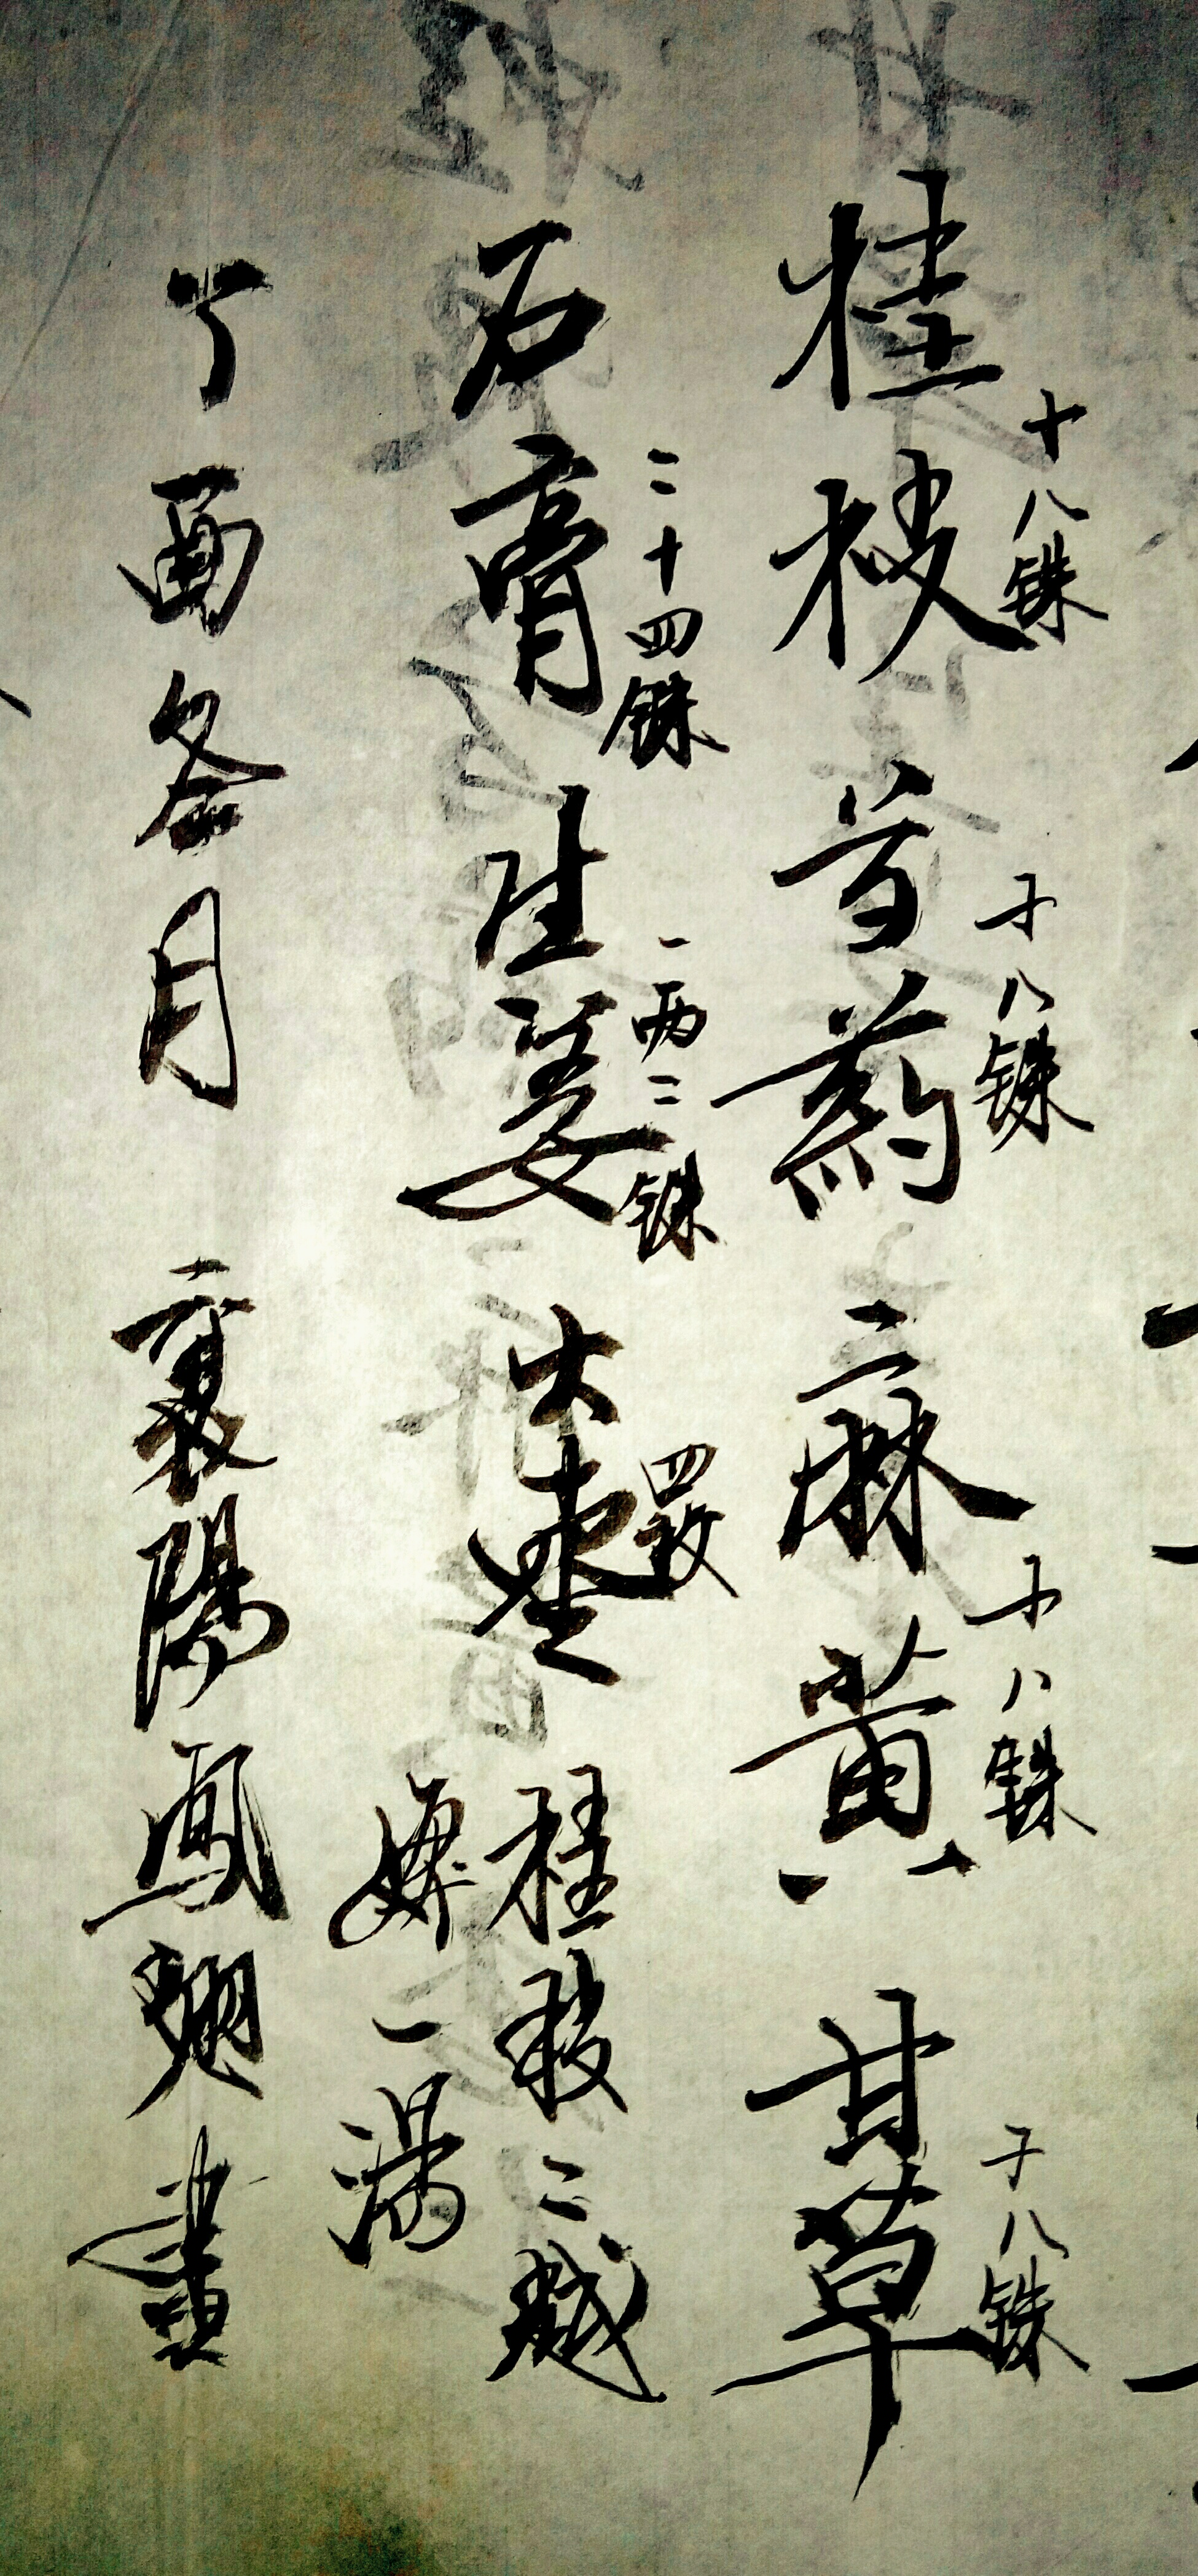 桂枝十八铢 芍药十八铢 麻黄十八铢 甘草十八铢
石膏二十四铢 生姜一两二铢 大枣四枚 桂枝二越
婢一汤
丁酉冬月 襄陽鳳翔書